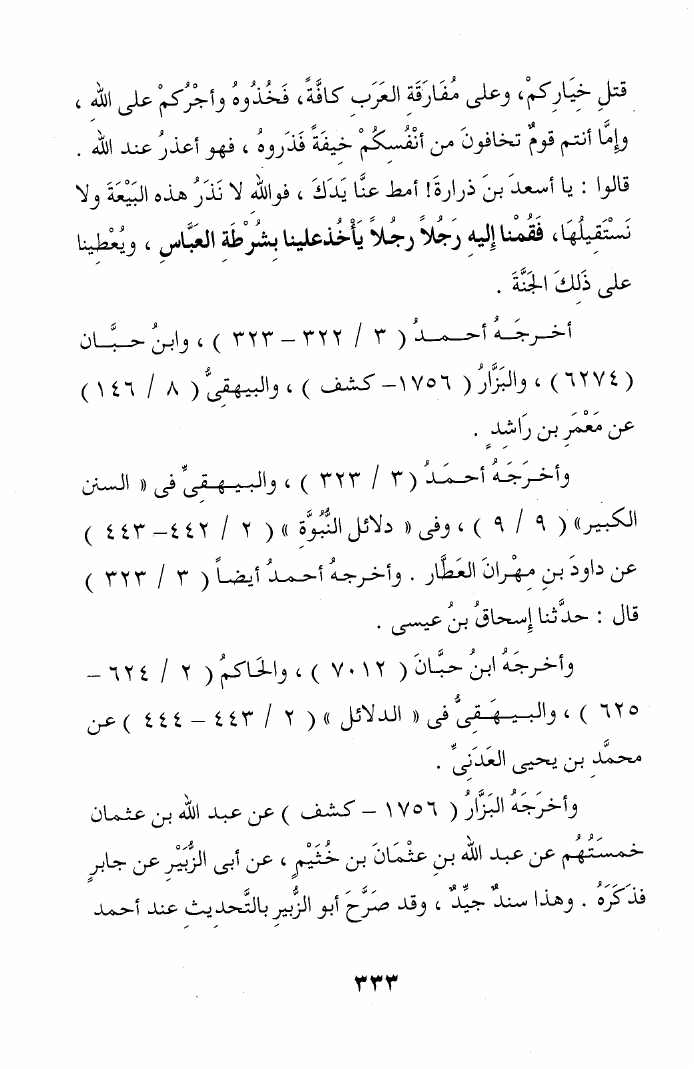 قتلِ خيَارِكمْ، وعلى مُفَارَقَةِ العَرَبِ كافَّةً، فَخُذُوهُ وأجْرُكُمْ على اللهِ ،
وإمَّا أنتم قومٌ تخافونَ من أنْفُسِكُمْ خيفَةً فَذَروهُ ، فهو أعذرُ عند الله .
قالوا : يا أسعدَ بنَ ذرارةَ! أمط عنَّا يَدَكَ ، فواللهِ لا نَذَرُ هذه البَيْعَةَ ولا
نَسْتَقيلُهَا، فَقُمْنا إليهِ رَجُلاً رجُلاً يَأْخُذعلينا بشُرْطَةِ العَبَّاسِ ، ويُعْطِينا
على ذَلِكَ الجَنَّةَ .
أخـرجَـهُ أحـمـدُ ( ٣ / ٣٢٢ – ٣٢٣ ) ، وابنُ حـبَّـان
(٦٢٧٤) ، والبَزَّارُ ( ١٧٥٦– كشف ) ، والبيهقىُّ ( ٨ / ١٤٦ )
عن مَعْمَرِ بن رَاشدٍ .
وأخـرَجَـهُ أحـمَـدُ (٣ / ٣٢٣ ) ، والبـيـهـقـىُّ فى « السنن
الكبير» ( ٩ / ٩ ) ، وفى « دلائل النُّبُوَّةِ » ( ٢ / ٤٤٢– ٤٤٣ )
عن داودَ بنِ مِهْرانَ العَطَّار . وأخرجهُ أحمدُ أيضاً ( ٣ / ٣٢٣ )
قال : حدَّثنا إسحاقُ بنُ عيسى .
وأخرَجَهُ ابنُ حبَّانَ ( ٧٠١٢ ) ، والحَاكمُ ( ٢ / ٦٢٤ –
٦٢٥ ) ، والبـيـهَـقىُّ فى « الدلائل » ( ٢ / ٤٤٣ – ٤٤٤ ) عن
محمَّدِ بن يحيى العَدَنىِّ .
وأخرَجَهُ البَزَّارُ ( ١٧٥٦ – كشف ) عن عبد الله بن عثمان
خمسَتُهُم عن عبد الله بنِ عثْمَانَ بن خُثَيْمٍ ، عن أبى الزُّبَيْرِ عن جابرٍ
فذَكَرَهُ . وهذا سندٌ جيِّدٌ ، وقد صرَّحَ أبو الزُّبيرِ بالتَّحديثِ عند أحمد
٣٣٣